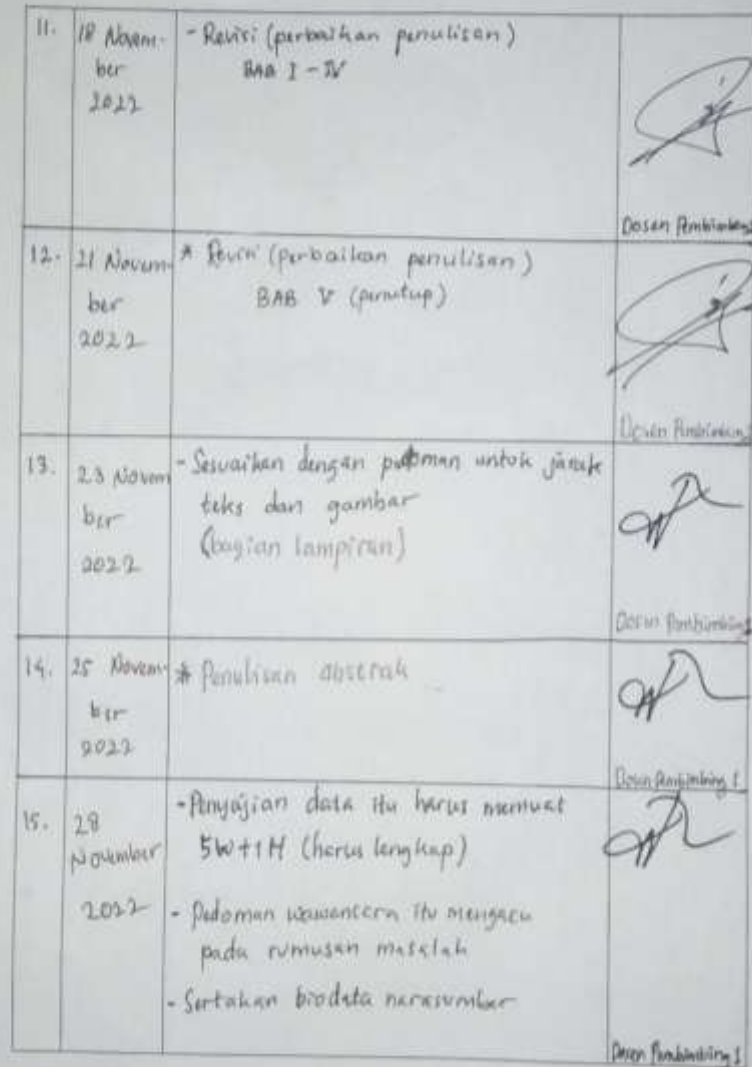 11. 18 Novem- - Revisi (perbaikan penulisan)
ber BAB I - IV
2022
Dosen Pembimbing
12. 21 Novem- * Revisi (perbaikan penulisan)
ber BAB V (penutup)
2022
Dosen Pembimbing
13. 23 Novem - Sesuaikan dengan pedoman untuk jarak
ber teks dan gambar
2022 (bagian lampiran)
Dosen Pembimbing
14. 25 Novem- * Penulisan abstrak
ber
2022
Dosen Pembimbing 1
15. 28 - Penyajian data itu harus memuat
November 5W+1H (harus lengkap)
2022 - Pedoman wawancara itu mengacu
pada rumusan masalah
- Sertakan biodata narasumber
Dosen Pembimbing 1